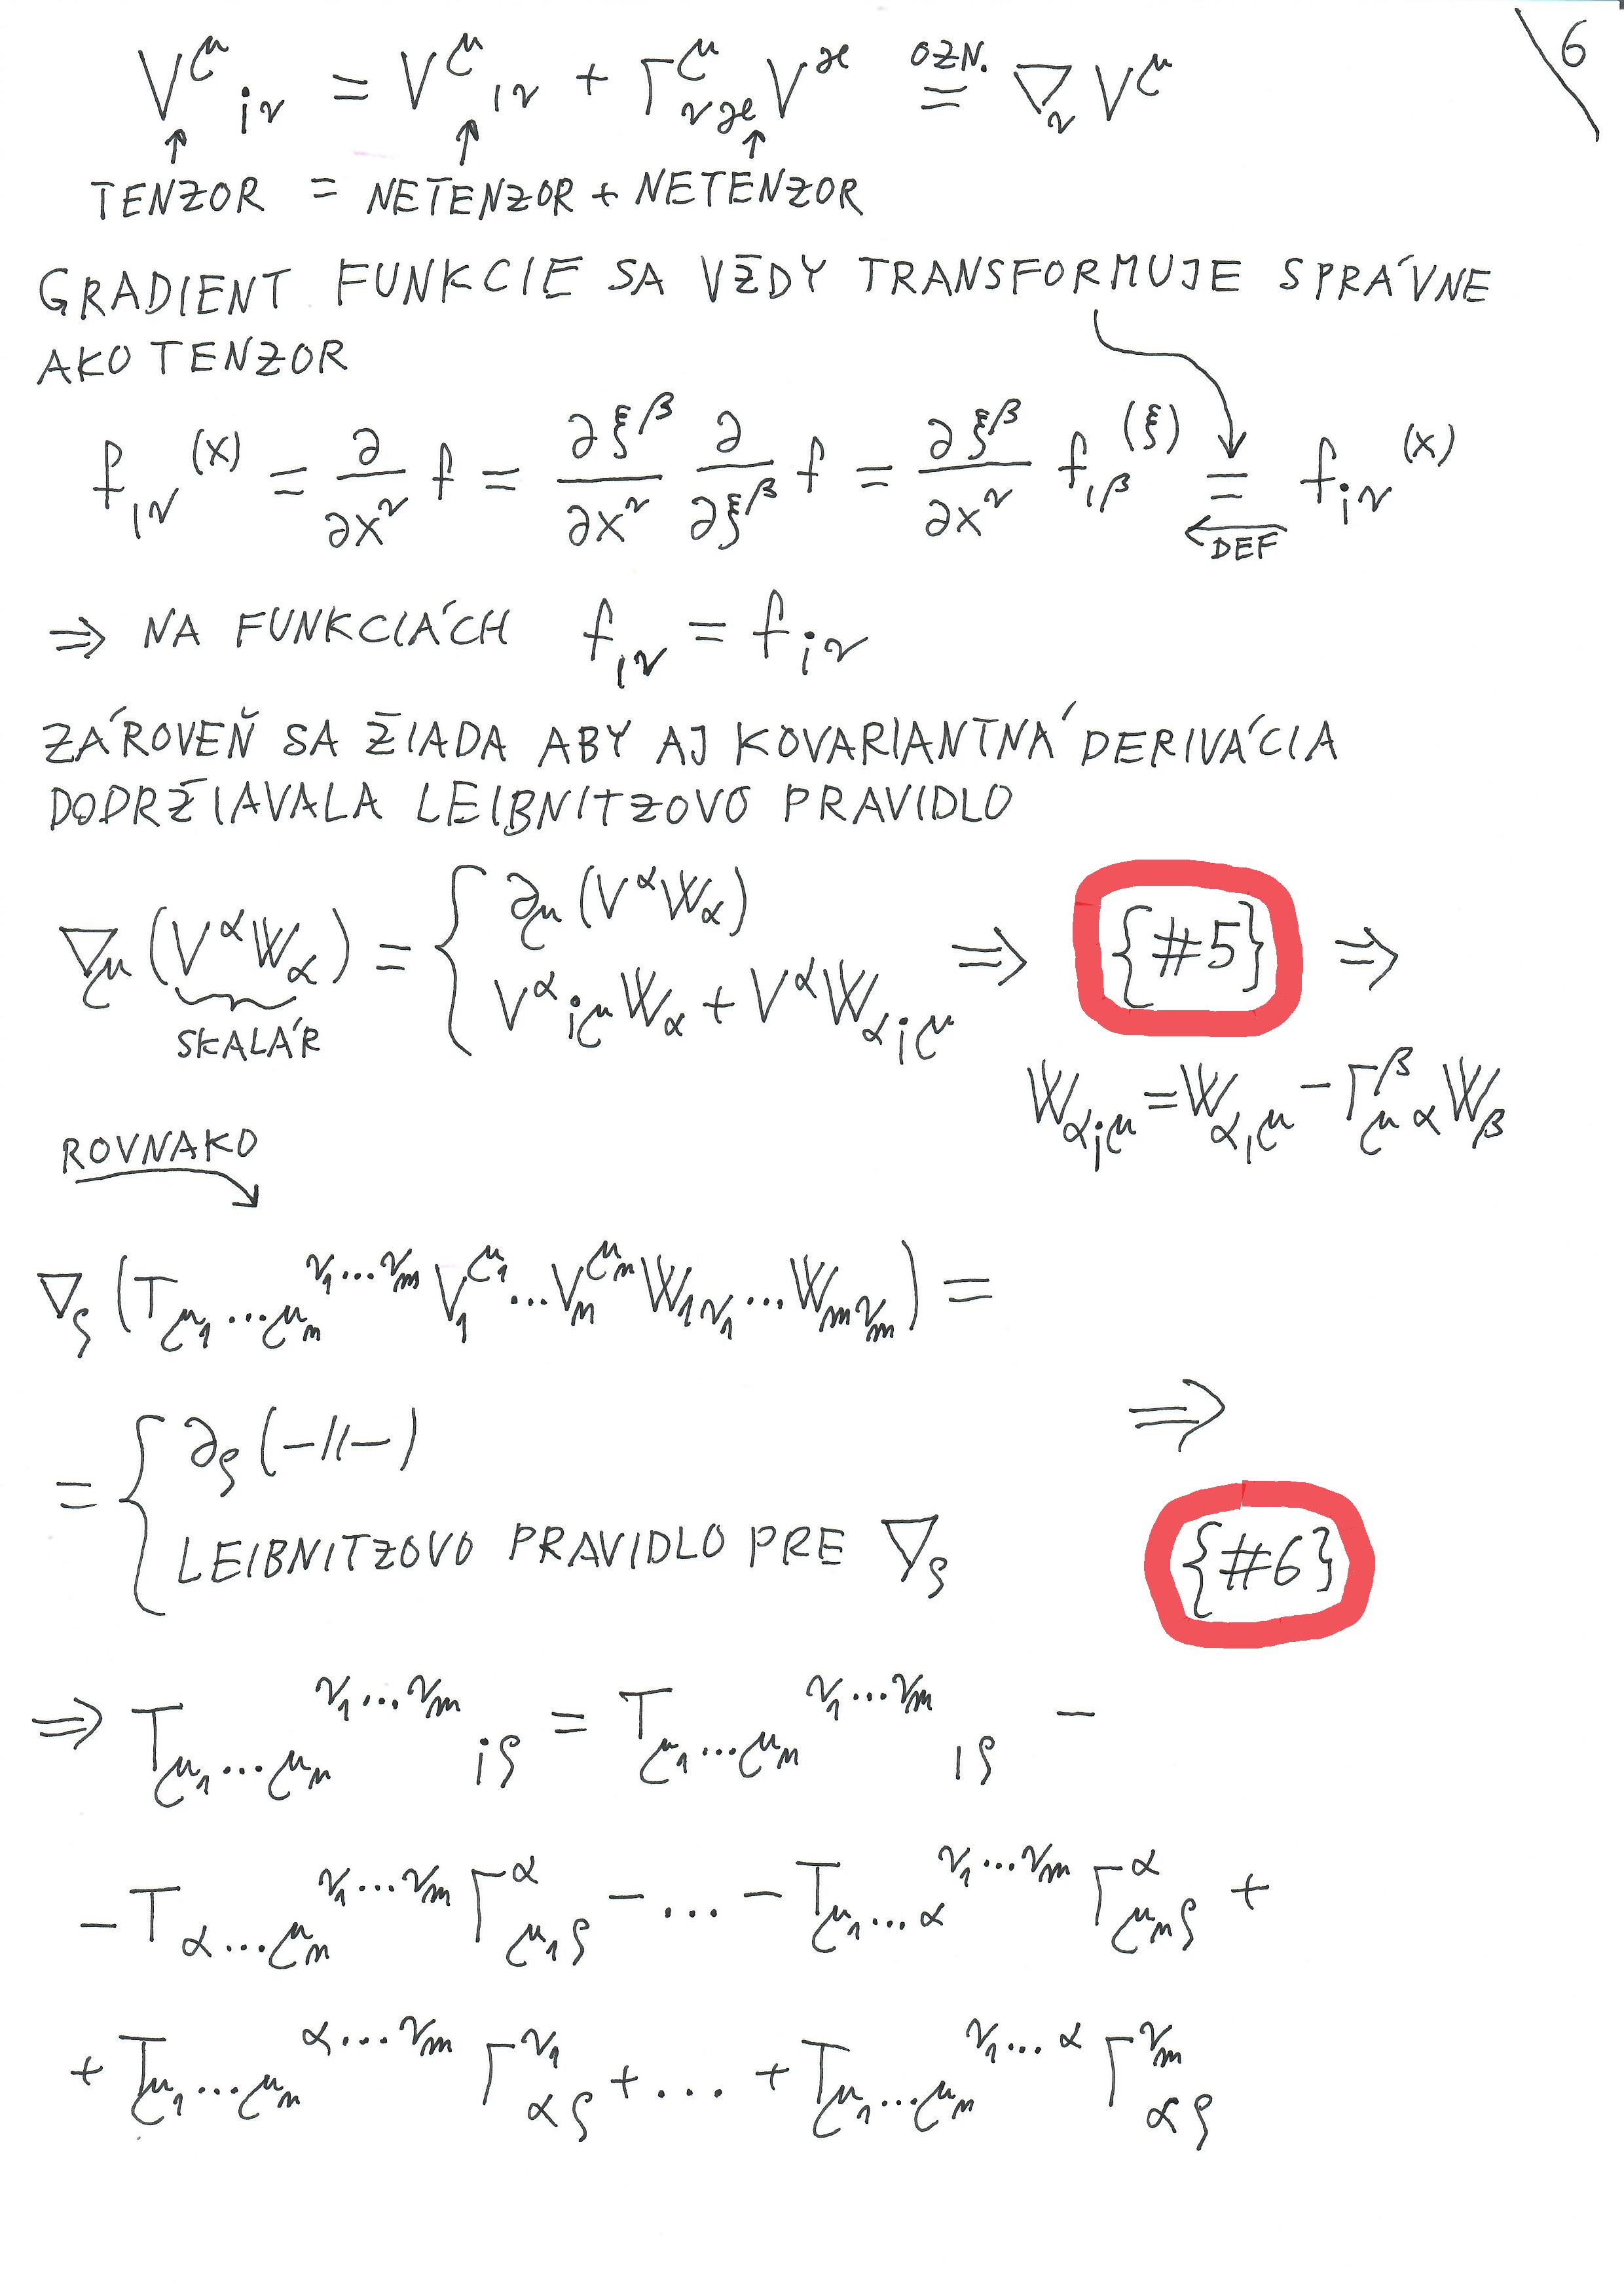 6
V^μ_{;ν} = V^μ_{,ν} + Γ^μ_{νϰ} V^ϰ \overset{OZN.}{=} ∇_ν V^μ
TENZOR = NETENZOR + NETENZOR
GRADIENT FUNKCIE SA VŽDY TRANSFORMUJE SPRÁVNE
AKO TENZOR
f_{,ν}^{(x)} = ∂/∂x^ν f = ∂ξ^β/∂x^ν ∂/∂ξ^β f = ∂ξ^β/∂x^ν f_{,β}^{(ξ)} = f_{;ν}^{(x)}
DEF
⇒ NA FUNKCIÁCH f_{,ν} = f_{;ν}
ZÁROVEŇ SA ŽIADA ABY AJ KOVARIANTNÁ DERIVÁCIA
DODRŽIAVALA LEIBNITZOVO PRAVIDLO
∇_μ (V^α W_α) = { ∂_μ (V^α W_α)
V^α_{;μ} W_α + V^α W_{α;μ} ⇒ {#5} ⇒
SKALÁR
W_{α;μ} = W_{α,μ} - Γ^β_{μα} W_β
ROVNAKO
∇_ρ (T_{μ_1...μ_n}^{ν_1...ν_m} V_1^{μ_1}...V_n^{μ_n} W_{1ν_1}...W_{mν_m}) =
= { ∂_ρ (-//-) ⇒
LEIBNITZOVO PRAVIDLO PRE ∇_ρ {#6}
⇒ T_{μ_1...μ_n}^{ν_1...ν_m}_{;ρ} = T_{μ_1...μ_n}^{ν_1...ν_m}_{,ρ} -
- T_{α...μ_n}^{ν_1...ν_m} Γ^α_{μ_1ρ} - ... - T_{μ_1...α}^{ν_1...ν_m} Γ^α_{μ_nρ} +
+ T_{μ_1...μ_n}^{α...ν_m} Γ^{ν_1}_{αρ} + ... + T_{μ_1...μ_n}^{ν_1...α} Γ^{ν_m}_{αρ}